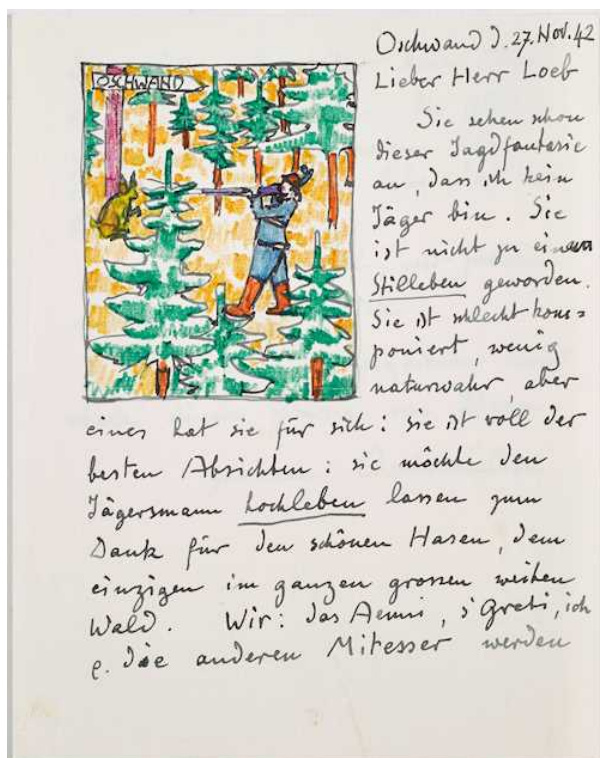 OSCHWAND
Oschwand d. 27. Nov. 42
Lieber Herr Loeb
Sie sehen schon
dieser Jagdfantasie
an, dass ich kein
Jäger bin. Sie
ist nicht zu einem
Stilleben geworden.
Sie ist schlecht kom=
poniert, wenig
naturwahr, aber
eines hat sie für sich: sie ist voll der
besten Absichten: sie möchte den
Jägersmann hochleben lassen zum
Dank für den schönen Hasen, dem
einzigen im ganzen grossen weiten
Wald. Wir: das Aenni, s'Greti, ich
e. die anderen Mitesser werden